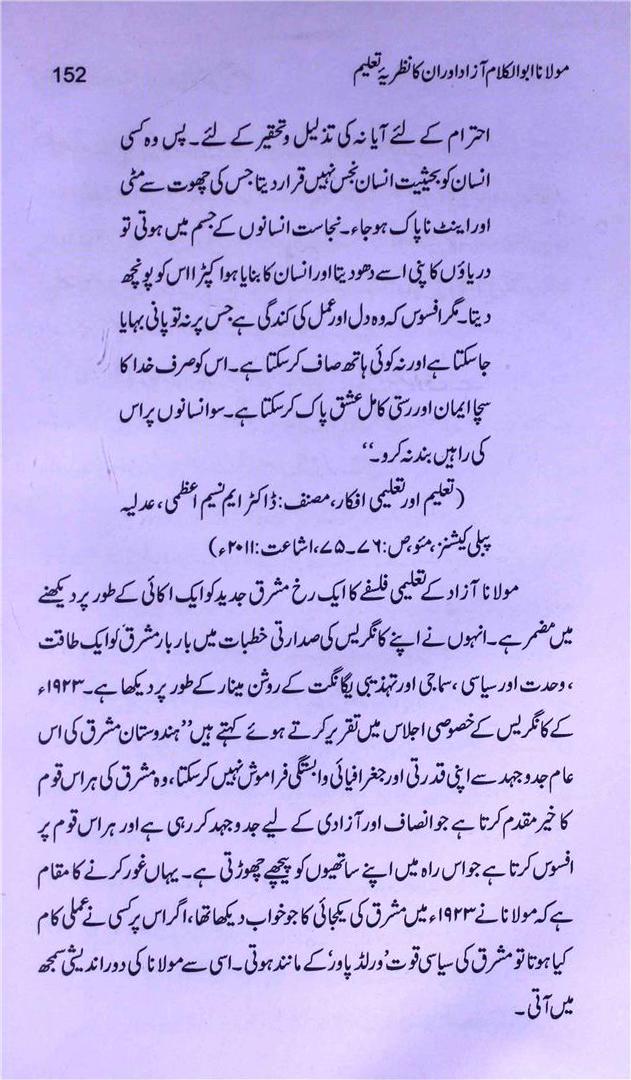 مولانا ابوالکلام آزاد اور ان کا نظریۂ تعلیم 152
احترام کے لئے آیا نہ کی تذلیل و تحقیر کے لئے۔ پس وہ کسی
انسان کو بحیثیت انسان نجس نہیں قرار دیتا جس کی چھوت سے مٹی
اور اینٹ ناپاک ہو جاء۔ نجاست انسانوں کے جسم میں ہوتی تو
دریاؤں کا پنی اسے دھو دیتا اور انسان کا بنایا ہوا کپڑا اس کو پونچھ
دیتا۔ مگر افسوس کہ وہ دل اور عمل کی گندگی ہے جس پر نہ تو پانی بہایا
جاسکتا ہے اور نہ کوئی ہاتھ صاف کرسکتا ہے۔ اس کو صرف خدا کا
سچا ایمان اور رستی کامل عشق پاک کرسکتا ہے۔ سو انسانوں پر اس
کی راہیں بند نہ کرو۔‘‘
(تعلیم اور تعلیمی افکار، مصنف: ڈاکٹر ایم نسیم اعظمی، عدلیہ
پبلی کیشنز، مئو، ص: ۷۶۔۷۵، اشاعت: ۲۰۱۱ء)
مولانا آزاد کے تعلیمی فلسفے کا ایک رخ مشرق جدید کو ایک اکائی کے طور پر دیکھنے
میں مضمر ہے۔ انہوں نے اپنے کانگریس کی صدارتی خطبات میں بار بار مشرق کو ایک طاقت
، وحدت اور سیاسی، سماجی اور تہذیبی یگانگت کے روشن مینار کے طور پر دیکھا ہے۔ ۱۹۲۳ء
کے کانگریس کے خصوصی اجلاس میں تقریر کرتے ہوئے کہتے ہیں ’’ہندوستان مشرق کی اس
عام جدوجہد سے اپنی قدرتی اور جغرافیائی وابستگی فراموش نہیں کرسکتا، وہ مشرق کی ہر اس قوم
کا خیر مقدم کرتا ہے جو انصاف اور آزادی کے لیے جدوجہد کر رہی ہے اور ہر اس قوم پر
افسوس کرتا ہے جو اس راہ میں اپنے ساتھیوں کو پیچھے چھوڑتی ہے۔ یہاں غور کرنے کا مقام
ہے کہ مولانا نے ۱۹۲۳ء میں مشرق کی یکجائی کا جو خواب دیکھا تھا، اگر اس پر کسی نے عملی کام
کیا ہوتا تو مشرق کی سیاسی قوت ’ورلڈ پاور‘ کے مانند ہوتی۔ اسی سے مولانا کی دوراندیشی سمجھ
میں آتی۔